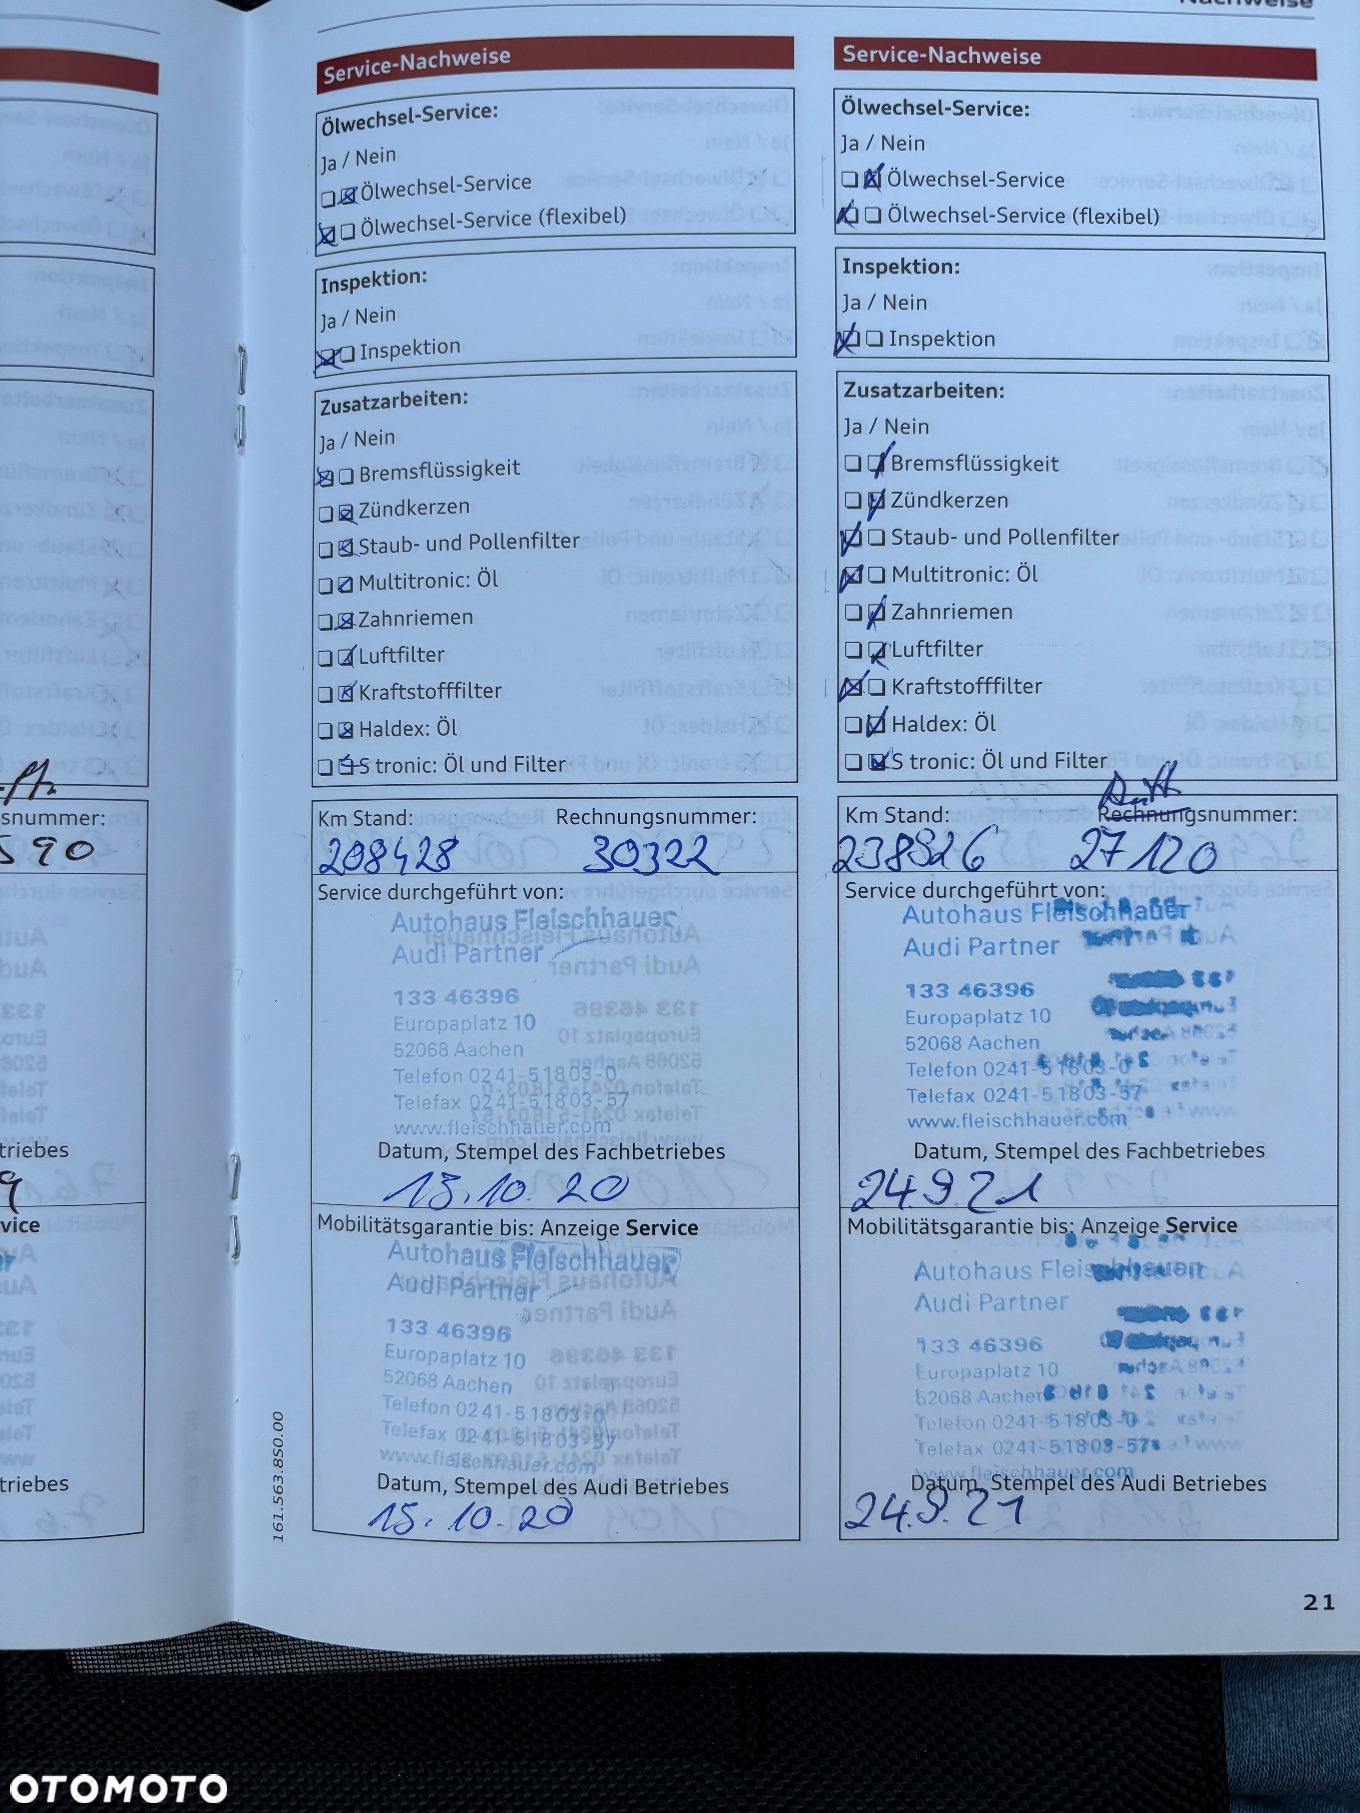 Nachweise
Service-Nachweise
Ölwechsel-Service:
Ja / Nein
Ölwechsel-Service
Ölwechsel-Service (flexibel)
Inspektion:
Ja / Nein
Inspektion
Zusatzarbeiten:
Ja / Nein
Bremsflüssigkeit
Zündkerzen
Staub- und Pollenfilter
Multitronic: Öl
Zahnriemen
Luftfilter
Kraftstofffilter
Haldex: Öl
S tronic: Öl und Filter
Km Stand: Rechnungsnummer:
208428 30322
Service durchgeführt von:
Autohaus Fleischhauer
Audi Partner
133 46396
Europaplatz 10
52068 Aachen
Telefon 0241-51803-0
Telefax 0241-51803-57
www.fleischhauer.com
Datum, Stempel des Fachbetriebes
15.10.20
Mobilitätsgarantie bis: Anzeige Service
Autohaus Fleischhauer
Audi Partner
133 46396
Europaplatz 10
52068 Aachen
Telefon 0241-51803-0
Telefax 0241-51803-57
www.fleischhauer.com
Datum, Stempel des Audi Betriebes
15.10.20
Service-Nachweise
Ölwechsel-Service:
Ja / Nein
Ölwechsel-Service
Ölwechsel-Service (flexibel)
Inspektion:
Ja / Nein
Inspektion
Zusatzarbeiten:
Ja / Nein
Bremsflüssigkeit
Zündkerzen
Staub- und Pollenfilter
Multitronic: Öl
Zahnriemen
Luftfilter
Kraftstofffilter
Haldex: Öl
S tronic: Öl und Filter
Km Stand: Rechnungsnummer:
238926 27120
Service durchgeführt von:
Autohaus Fleischhauer
Audi Partner
133 46396
Europaplatz 10
52068 Aachen
Telefon 0241-51803-0
Telefax 0241-51803-57
www.fleischhauer.com
Datum, Stempel des Fachbetriebes
24.9.21
Mobilitätsgarantie bis: Anzeige Service
Autohaus Fleischhauer
Audi Partner
133 46396
Europaplatz 10
52068 Aachen
Telefon 0241-51803-0
Telefax 0241-51803-57
www.fleischhauer.com
Datum, Stempel des Audi Betriebes
24.9.21
snummer:
590
triebes
9
vice
triebes
161.563.850.00
21
OTOMOTO